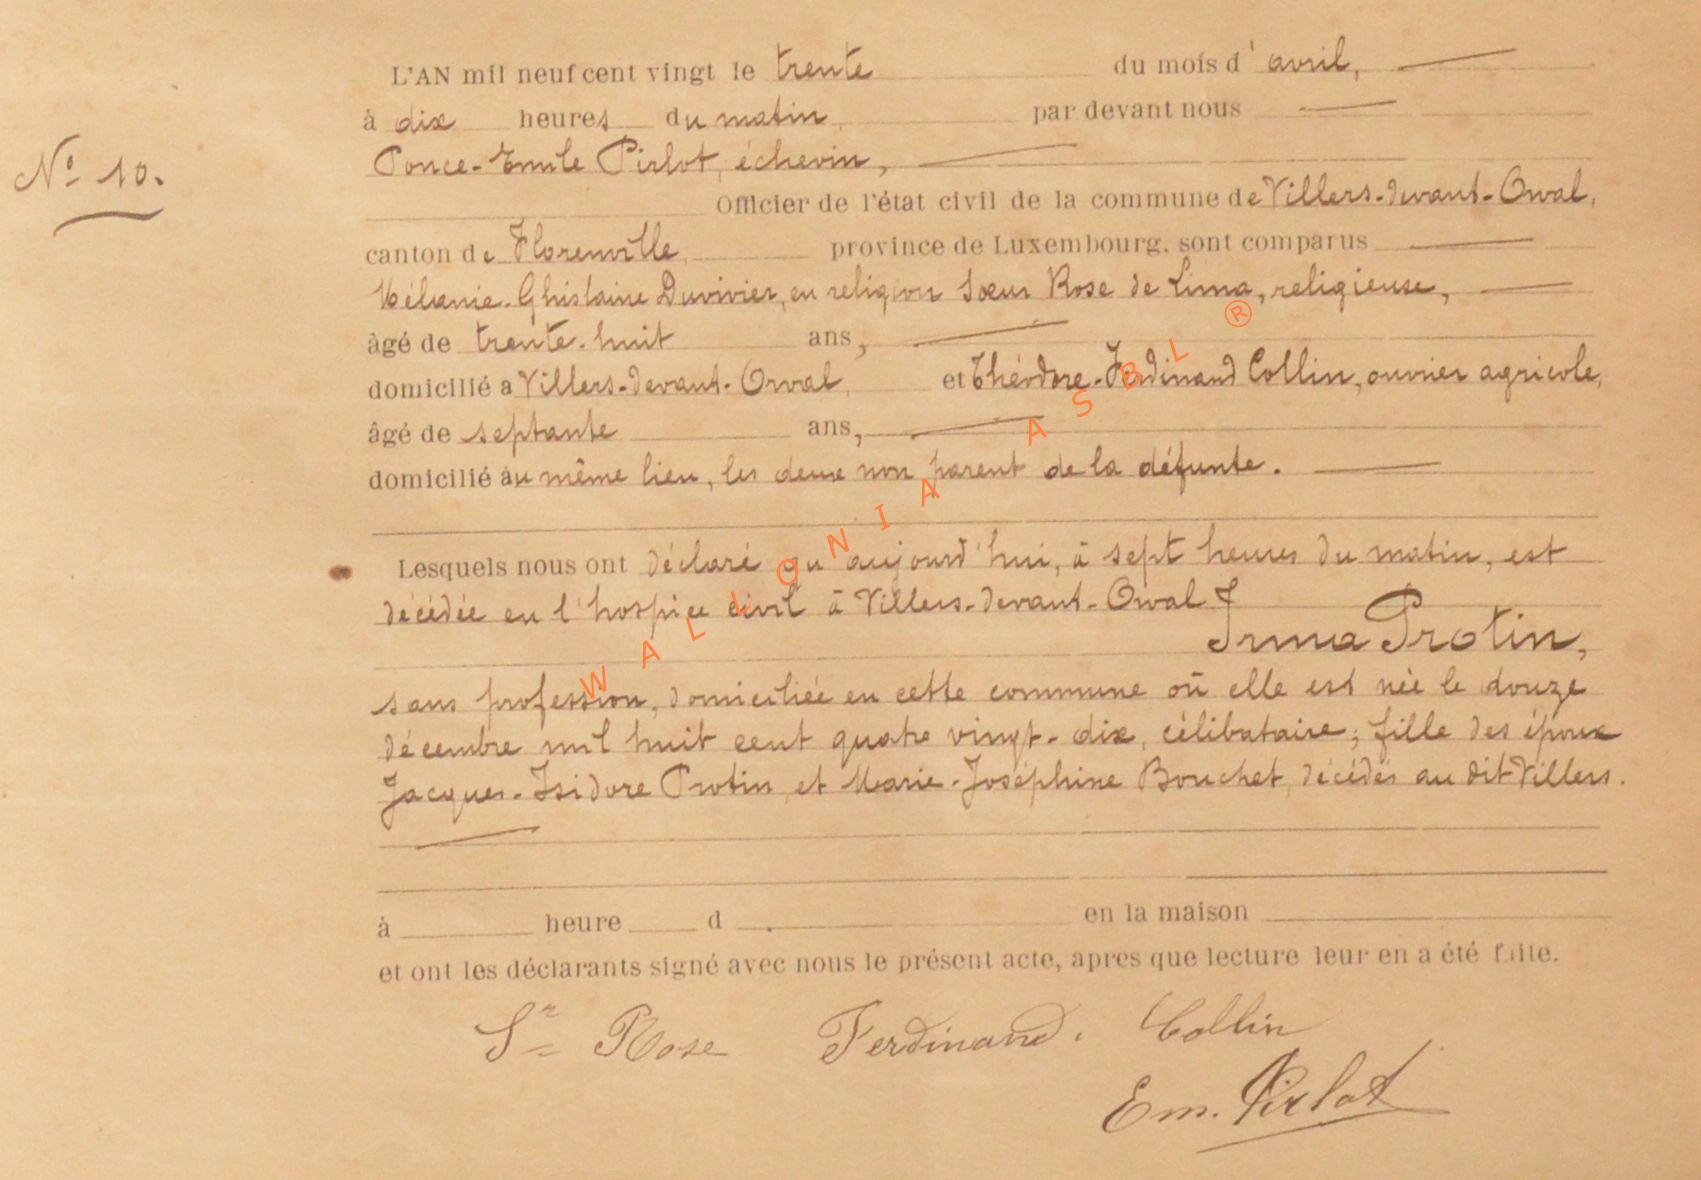 L'AN mil neuf cent vingt le trente du mois d' avril,
à dix heures du matin, par devant nous
Ponce-Emile Pirlot, échevin,
N° 10.
Officier de l'état civil de la commune de Villers-devant-Orval,
canton de Florenville, province de Luxembourg. sont comparus
Mélanie-Ghislaine Duvivier, en religion Sœur Rose de Lima, religieuse,
âgé de trente-huit ans,
domicilié à Villers-devant-Orval, et Théodore-Ferdinand Collin, ouvrier agricole,
âgé de septante ans,
domicilié au même lieu, les deux non parent de la défunte.
Lesquels nous ont déclaré qu'aujourd'hui, à sept heures du matin, est
décédée en l'hospice civil à Villers-devant-Orval
Irma Protin,
sans profession, domiciliée en cette commune où elle est née le douze
décembre mil huit cent quatre vingt-dix, célibataire; fille des époux
Jacques-Isidore Protin, et Marie-Joséphine Bouchet, décédés au dit Villers.
à heure d en la maison
et ont les déclarants signé avec nous le présent acte, apres que lecture leur en a été faite.
Sr Rose Ferdinand. Collin
Em. Pirlot
WALLONIA ASBL ®